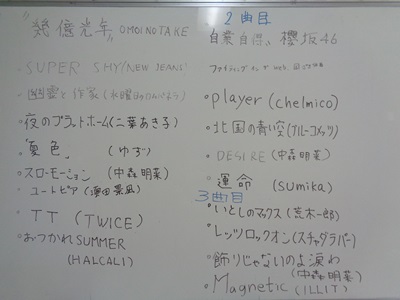 "幾億光年" OMOINOTAKE
・SUPER SHY(NEW JEANS)
・幽霊と作家(水曜日のカンパネラ)
・夜のプラットホーム(二葉あき子)
・夏色 (ゆず)
・スローモーション(中森明菜)
・ユートピア(濱田景凪)
・TT (TWICE)
・おつかれSUMMER
(HALCALI)
2曲目
自業自得、櫻坂46
ファイティングオンザweb
・player(chelmico)
・北国の青い空(ブルーコメッツ)
・DESIRE(中森明菜)
・運命(sumika)
3曲目
・いとしのマックス(荒木一郎)
・レッツロックオン(スチャダラパー)
・飾りじゃないのよ涙わ
(中森明菜)
・Magnetic(ILLIT)